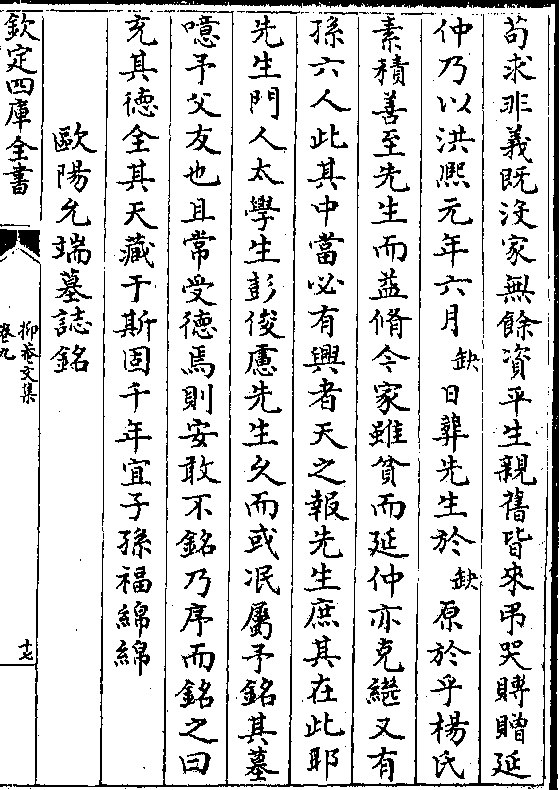 苟求非義既沒家無餘資平生親舊皆來弔哭賻贈延
仲乃以洪熈元年六月缺日葬先生於缺原於乎楊氏
素積善至先生而益脩今家雖貧而延仲亦克繼又有
孫六人此其中當必有興者天之報先生庶其在此耶
先生門人太學生彭俊慮先生乆而或泯屬予銘其墓
噫予父友也且常受德焉則安敢不銘乃序而銘之曰
充其德全其天藏于斯固千年宜子孫福綿綿
歐陽允端墓誌銘
欽定四庫全書
抑菴文集
卷九
十七